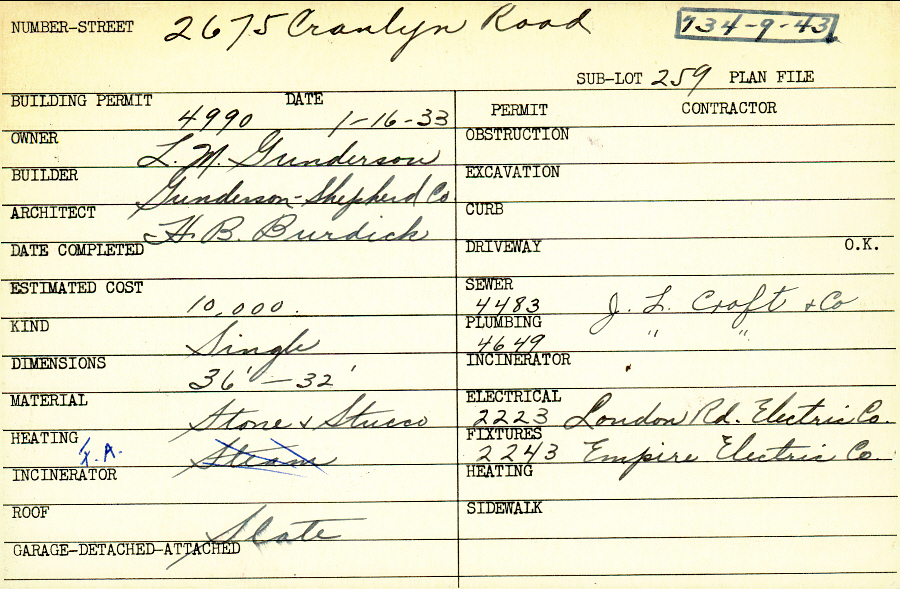 NUMBER-STREET 2675 Cranlyn Road 734-9-43
SUB-LOT 259 PLAN FILE
BUILDING PERMIT 4990 DATE 1-16-33
OWNER L. M. Gunderson
BUILDER Gunderson-Shepherd Co.
ARCHITECT H. B. Burdick
DATE COMPLETED
ESTIMATED COST 10,000.
KIND Single
DIMENSIONS 36' - 32'
MATERIAL Stone & Stucco
HEATING F.A. Steam
INCINERATOR
ROOF Slate
GARAGE-DETACHED-ATTACHED
PERMIT CONTRACTOR
OBSTRUCTION
EXCAVATION
CURB
DRIVEWAY O.K.
SEWER 4483 J. L. Croft & Co
PLUMBING 4649 " "
INCINERATOR
ELECTRICAL 2223 London Rd. Electric Co.
FIXTURES 2243 Empire Electric Co.
HEATING
SIDEWALK